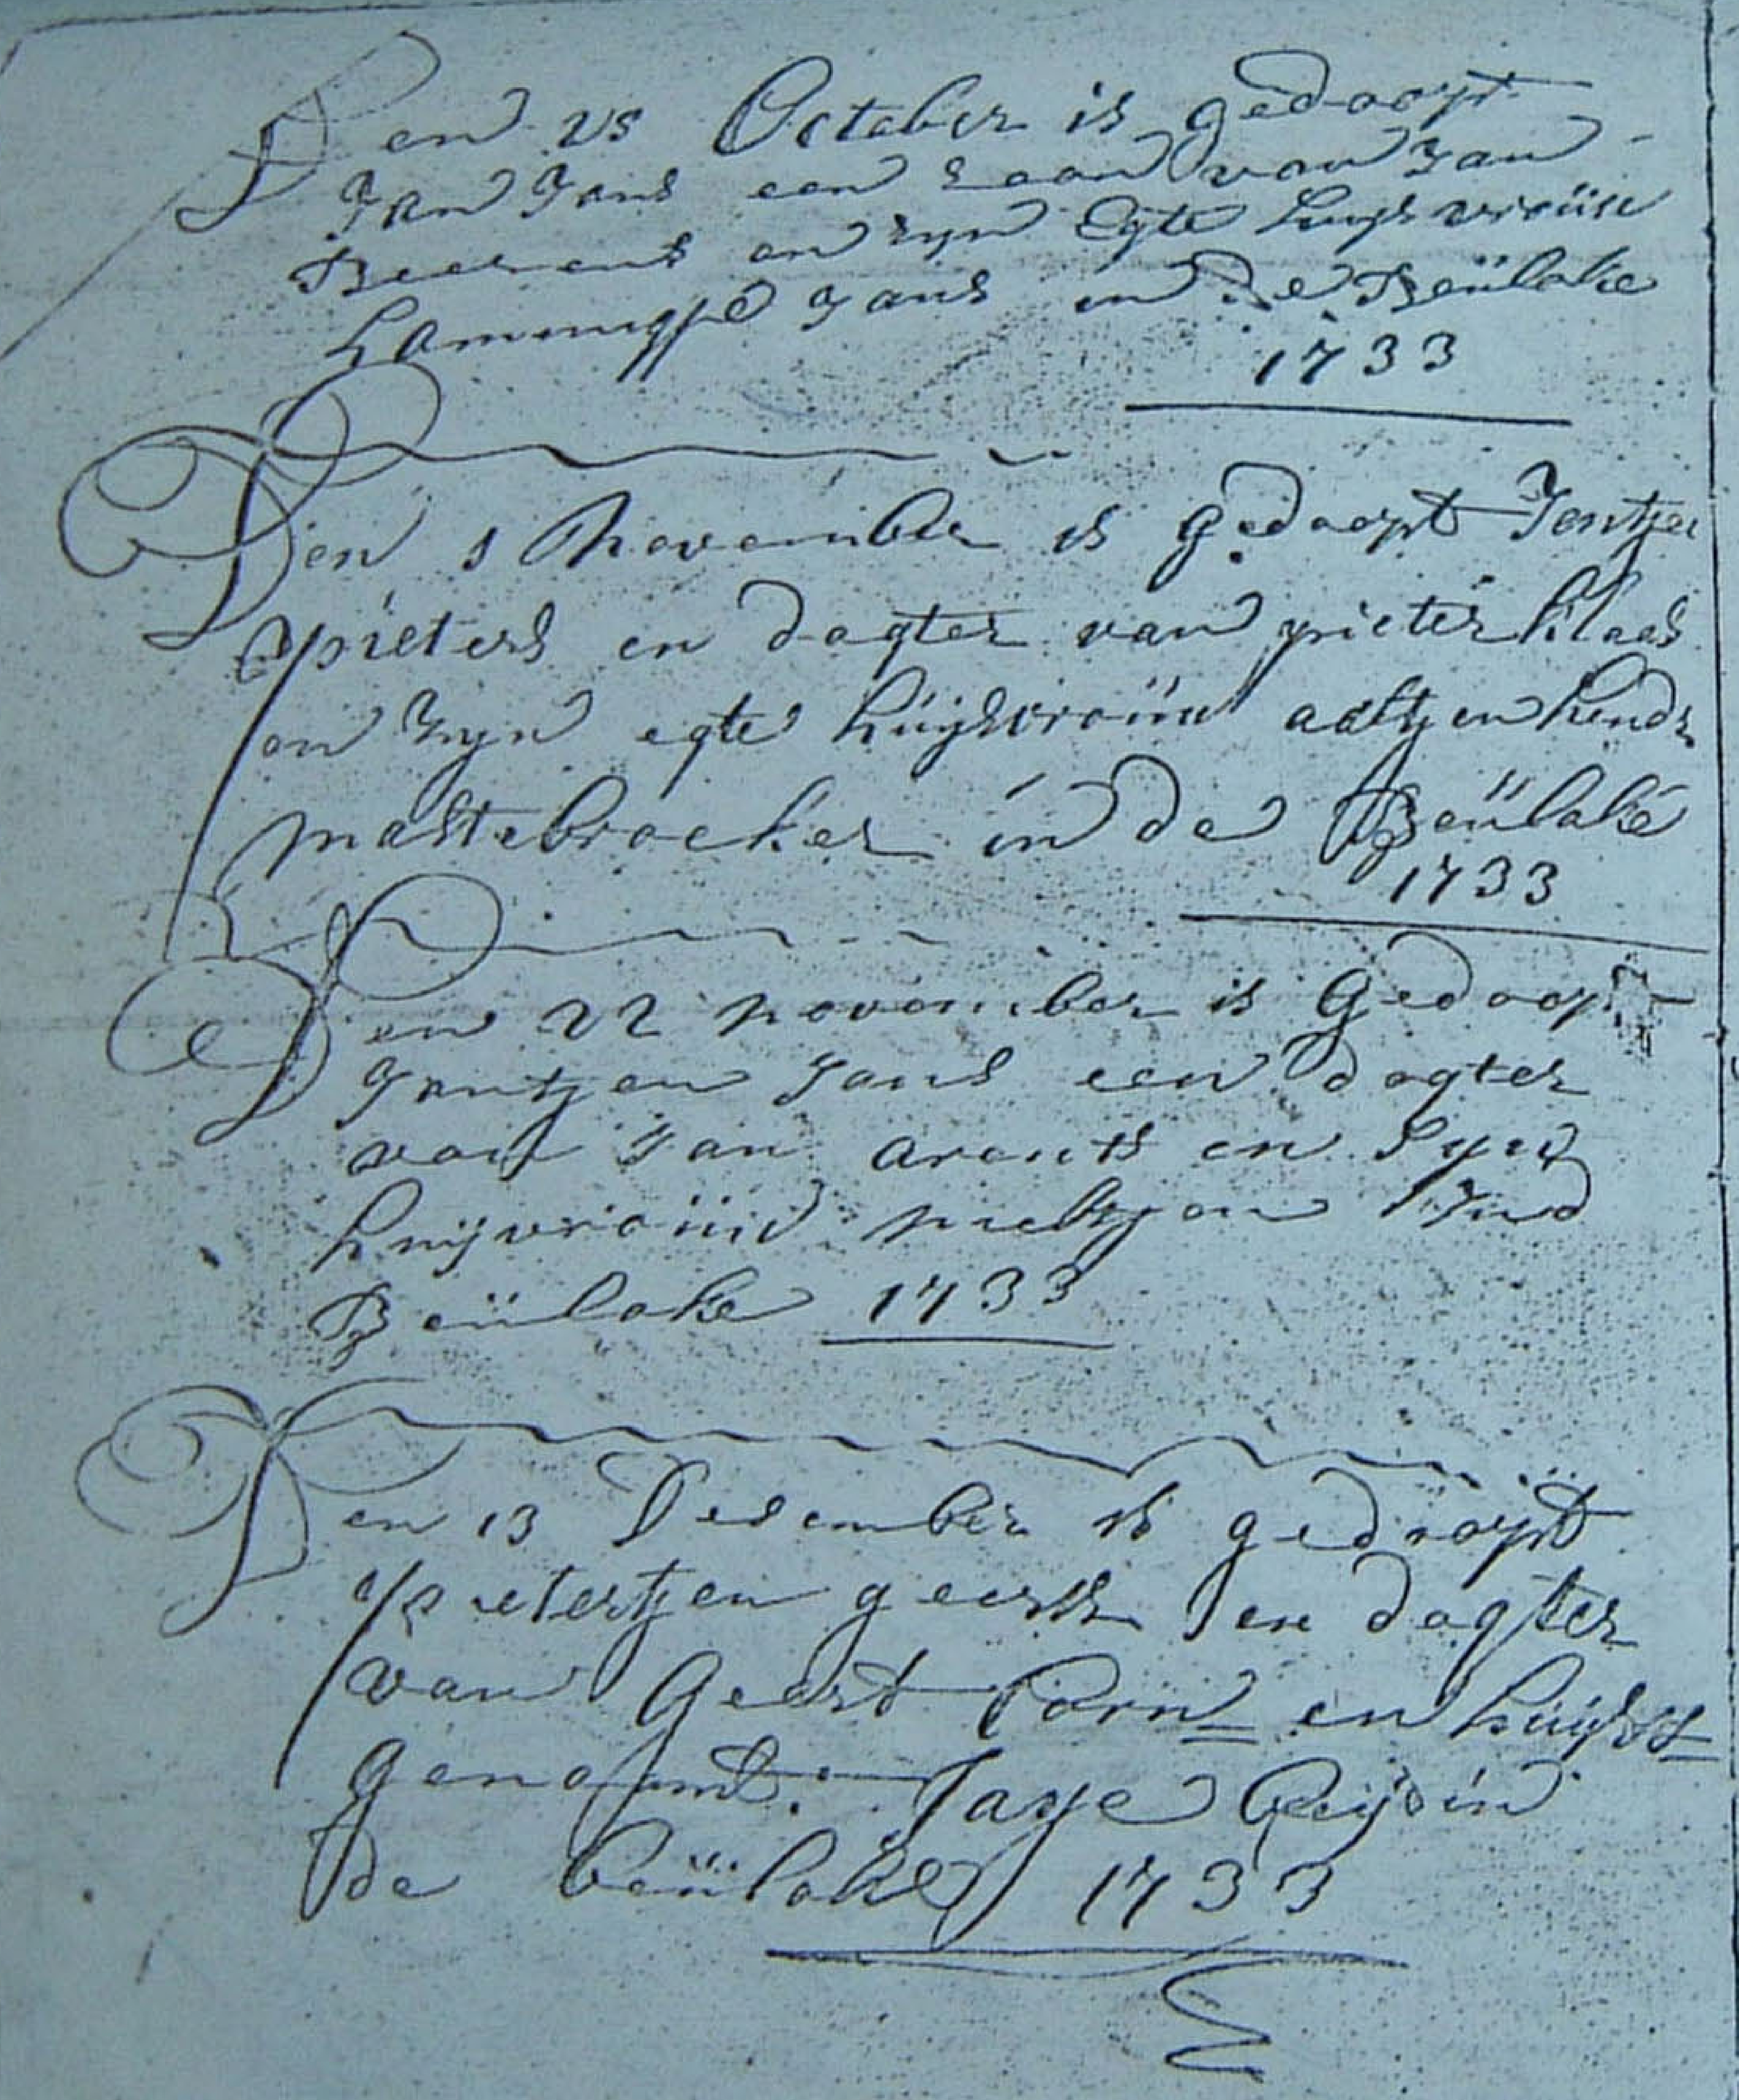 Den 25 October is gedoopt
Jan Jans een Soon van Jan
Beerents en zyn Egte huys vroüw
Jans in de Beülake
1733
Den 1 November is gedoopt Jentjen
pieters en dogter van pieter klaas
en Zyn egte hüijsvroüw aeltjen hendr
mastebroeker in de Beülake
1733
Den 22 november is Gedoopt
Jantjen Jans een dogter
van Jan arents en Syn
huijvroüw
Beülake 1733
Den 13 Desember is gedoopt
pietertjen geerts en dogter
van Geert Corn en hüijsv
genaamt Jaye in
de beülake 1733